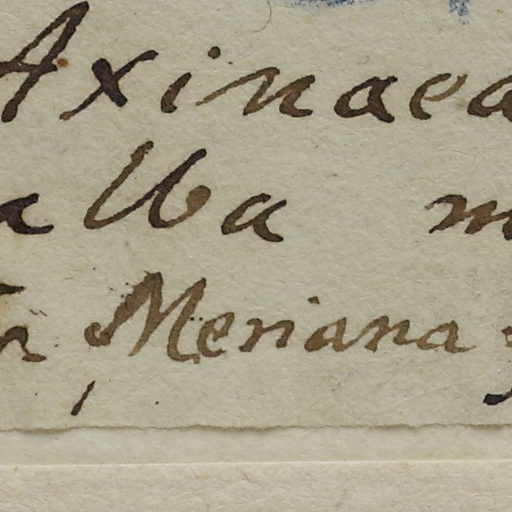 Axinaea
alba m
Meriana